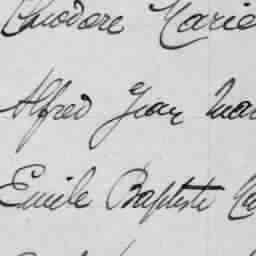 Théodore Marie
Alfred Jean Mar
Emile Baptiste Ca